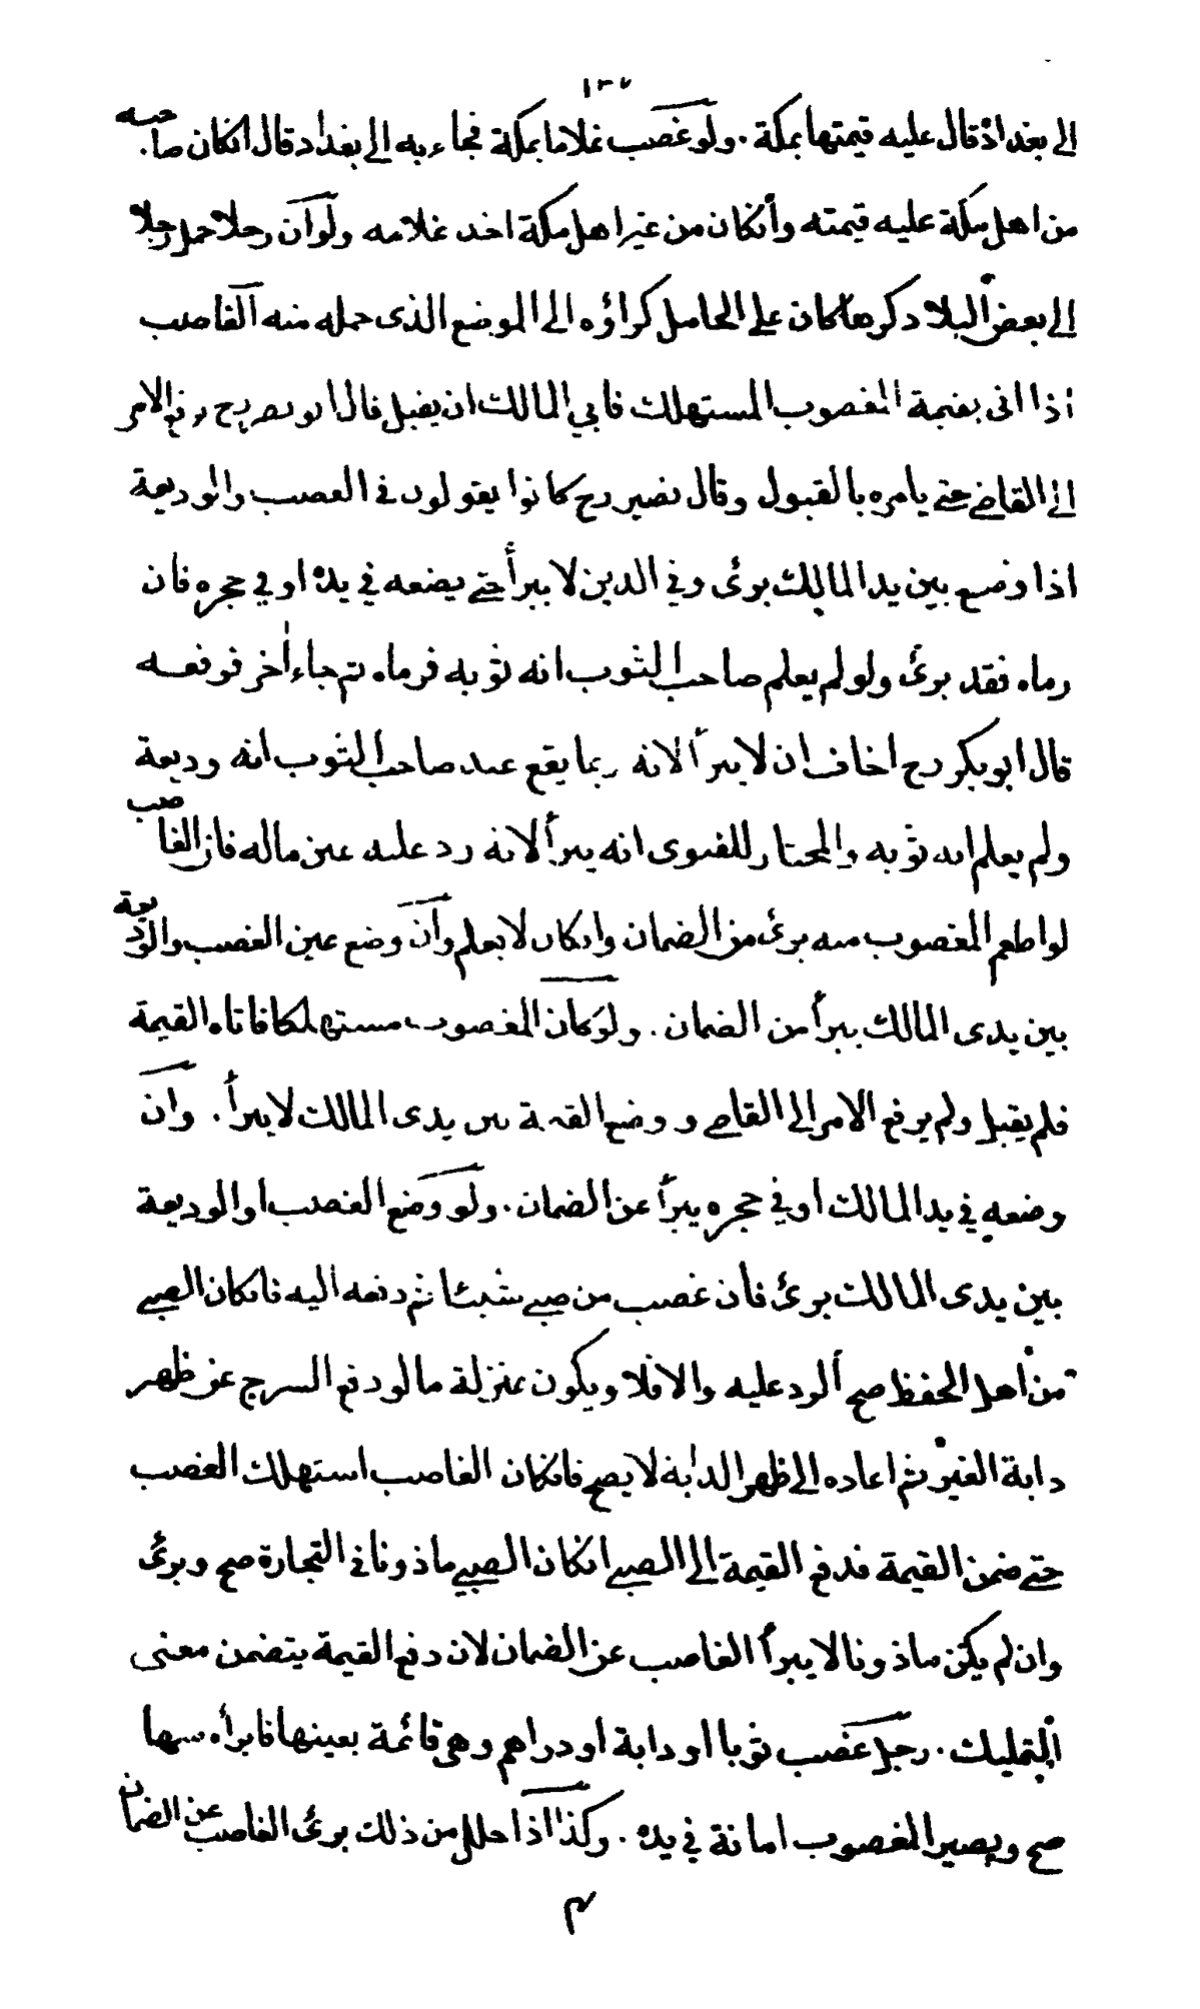 ١٣٧
الى بغداد قال عليه قيمتها بمكة . ولو غصب غلاما بمكة فجاء به الى بغداد قال انكان صاحبه
من اهل مكة عليه قيمته وأنكان من غير اهل مكة اخد غلامه ولو أن رجلا حمل رجلا
الى بعض البلاد كرها كان على الحامل كراؤه الى الموضع الذى حمله منه الغاصب
اذا اتى بقيمة المغصوب المستهلك فابي المالك ان يقبل قال ابو نصر رح يرفع الامر
الى القاضي حتى يامره بالقبول وقال نصير رح كانوا يقولون في الغصب والوديعة
اذا وضع بين يد المالك برئ وفي الدين لا يبرأ حتى يضعه في يده او في حجره فان
رماه فقد برئ ولو لم يعلم صاحب الثوب انه ثوبه فرماه ثم جاء أخر فرفعه
قال ابو بكر رح اخاف ان لا يبرأ لانه ربما يقع عند صاحب الثوب انه وديعة
ولم يعلم انه ثوبه والمختار للفتوى انه يبرأ لانه رد عليه عين ماله فان الغاصب
لو اطعم المغصوب منه برئ من الضمان وانكان لا يعلم وأن وضع عين الغصب والوديعة
بين يدى المالك يبرأ من الضمان . ولو كان المغصوب مستهلكا فاتاه القيمة
فلم يقبل ولم يرفع الامر الى القاضي ووضع القيمة بين يدى المالك لا يبرأ . وأن
وضعه في يد المالك او في حجره يبرأ عن الضمان . ولو وضع الغصب او الوديعة
بين يدى المالك برئ فأن غصب من صبي شيئا ثم دفعه اليه فانكان الصبي
من أهل الحفظ صح ألرد عليه والا فلا ويكون بمنزلة ما لو دفع السرج عن ظهر
دابة الغير ثم اعاده الى ظهر الدابة لا يصح فانكان الغاصب استهلك الغصب
حتى ضمن القيمة فدفع القيمة الى الصبي انكان الصبي ماذونا في التجارة صح وبرئ
وان لم يكن ماذونا لا يبرأ الغاصب عن الضمان لان دفع القيمة يتضمن معنى
التمليك . رجل غصب ثوبا او دابة او دراهم وهى قائمة بعينها فابرأه منها
صح ويصير المغصوب امانة في يده . وكذا اذا حلله من ذلك برئ الغاصب عن الضمان